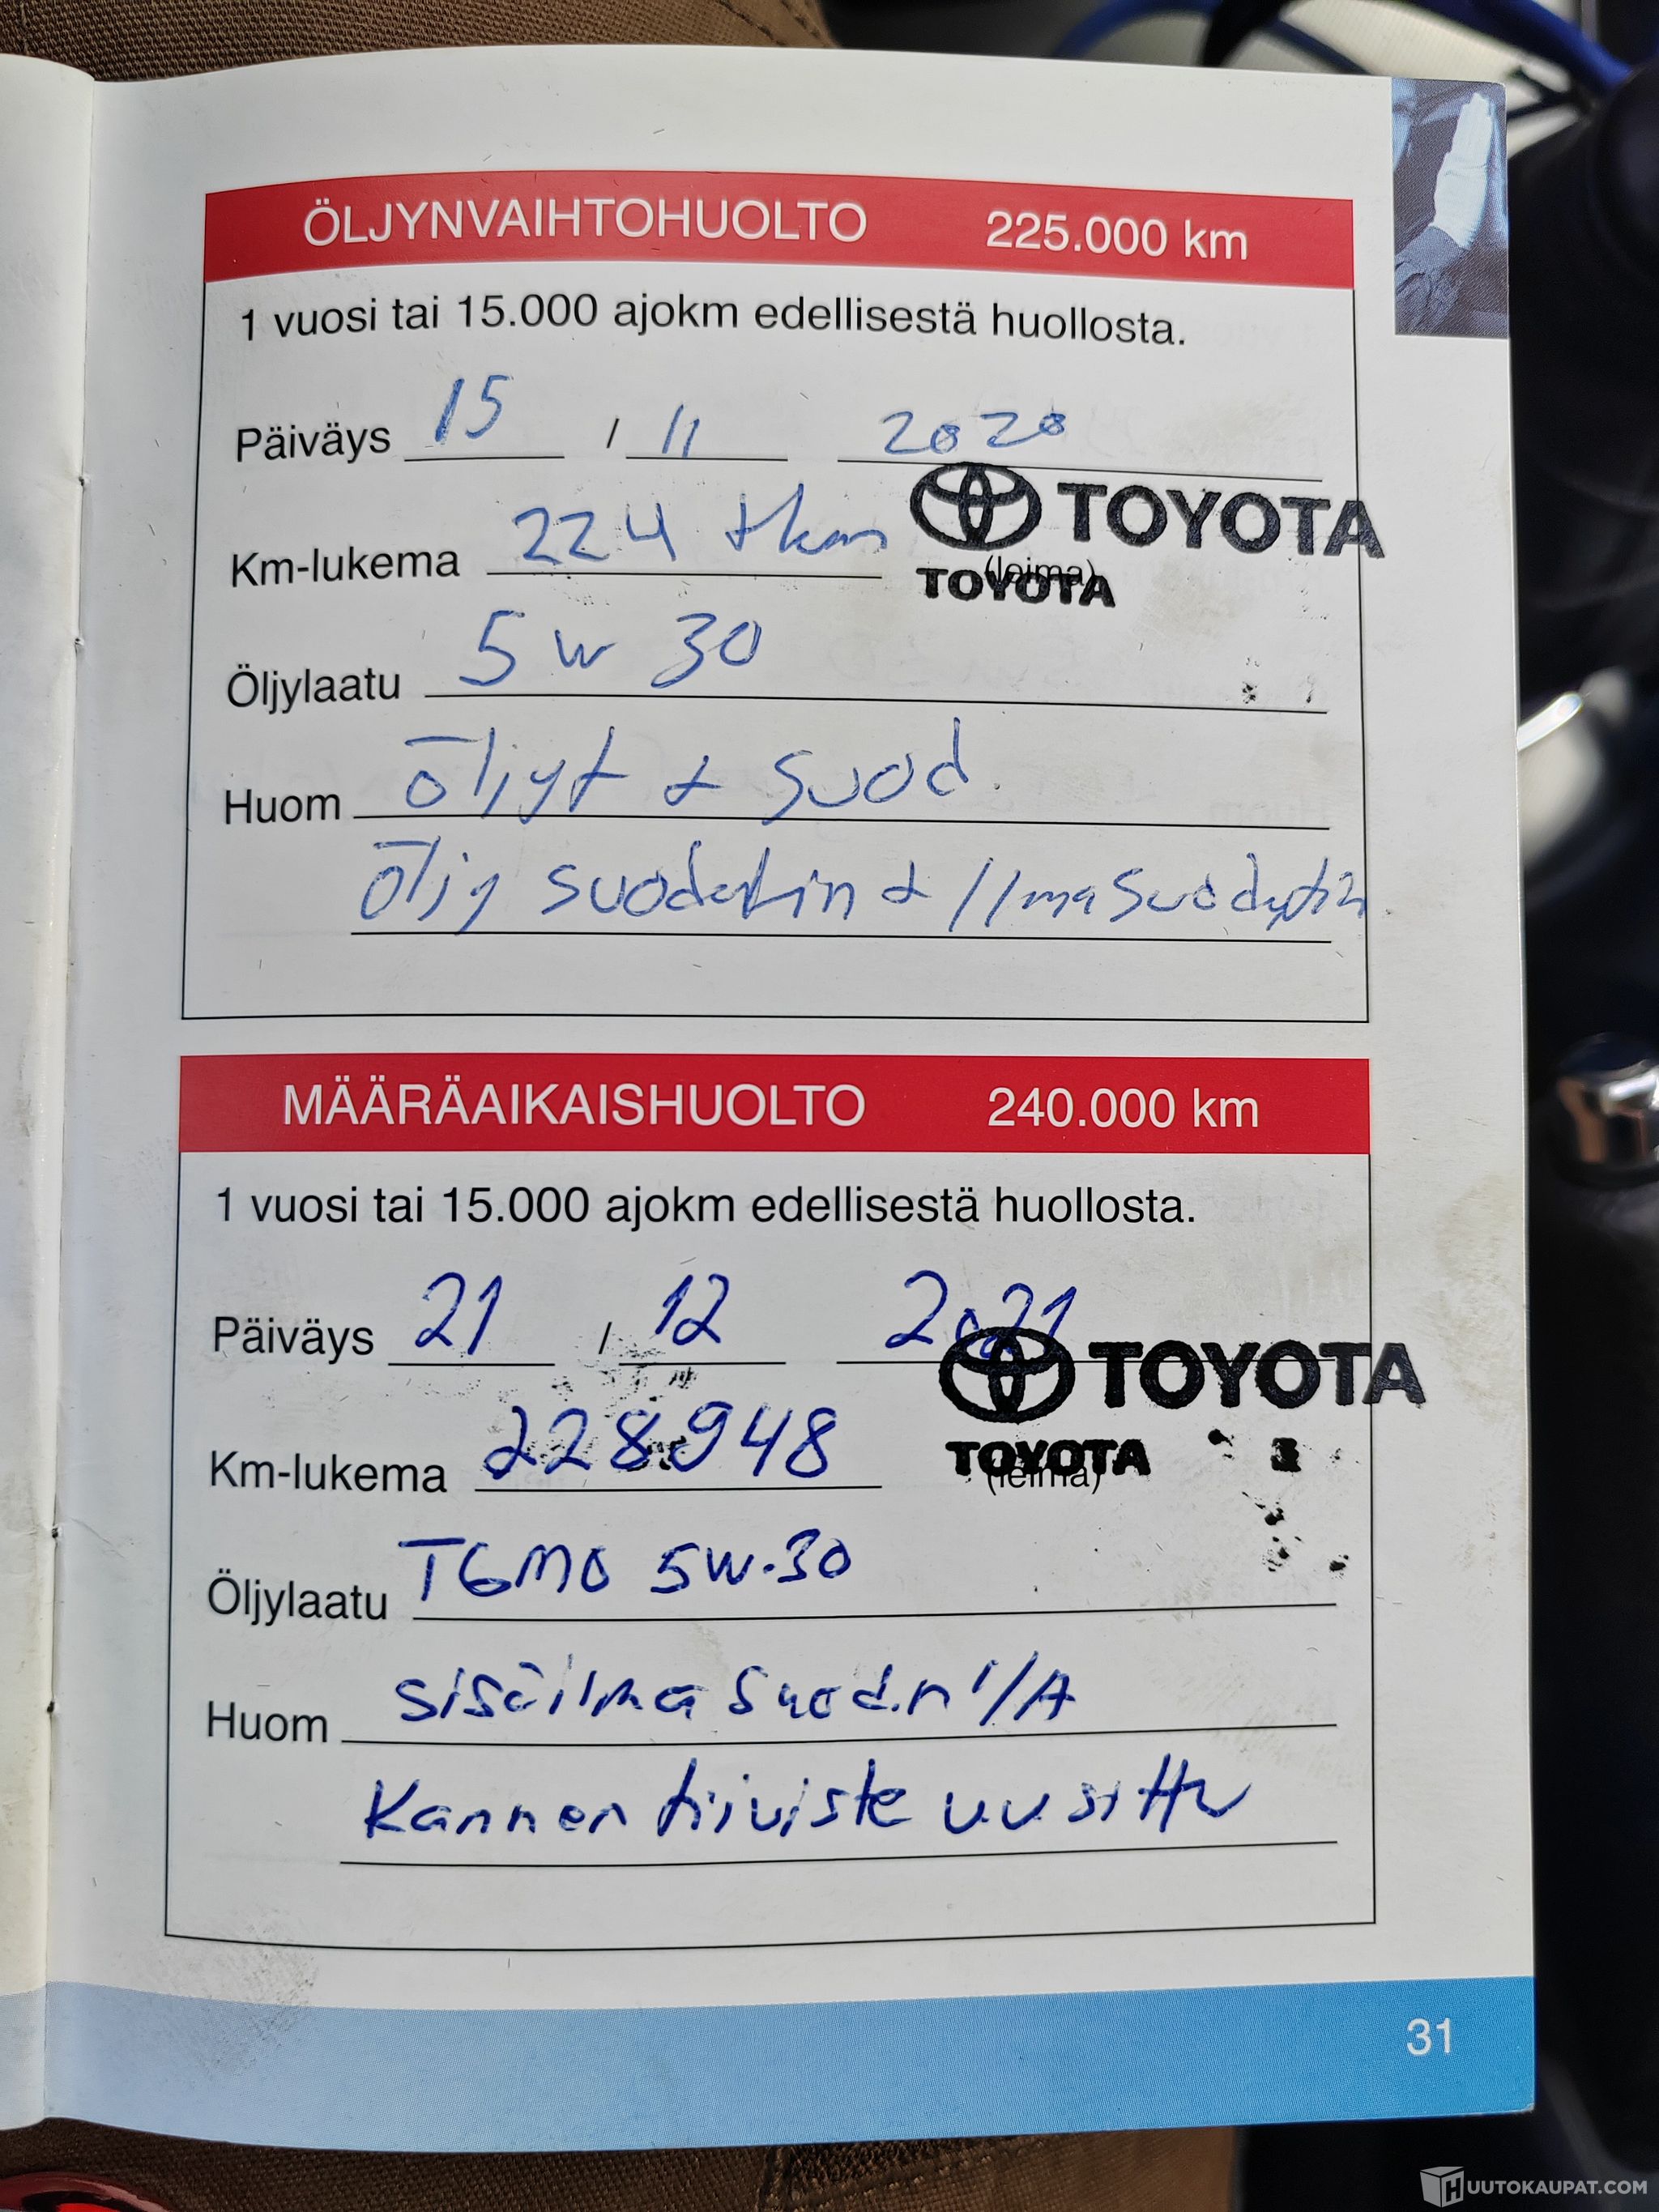 ÖLJYNVAIHTOHUOLTO 225.000 km
1 vuosi tai 15.000 ajokm edellisestä huollosta.
Päiväys 15 / 11 2020
TOYOTA
Km-lukema 224 tkm
(leima)
TOYOTA
Öljylaatu 5w 30
Huom öljyt & suod.
öljy suodatin & ilmasuodatin
MÄÄRÄAIKAISHUOLTO 240.000 km
1 vuosi tai 15.000 ajokm edellisestä huollosta.
Päiväys 21 / 12 2021
TOYOTA
Km-lukema 228.948
TOYOTA
(leima)
Öljylaatu TGMO 5W-30
Huom sisäilma suod.n
Kannen tiiviste uusittu
31
HUUTOKAUPAT.COM